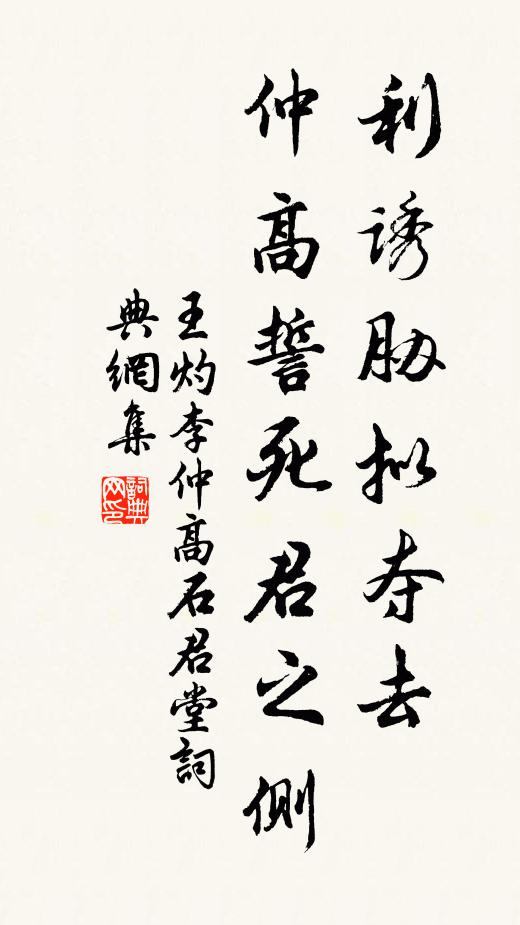 利诱胁拟夺去
仲高誓死君之侧
王灼李仲高石君堂詞
典網集
詞典网印